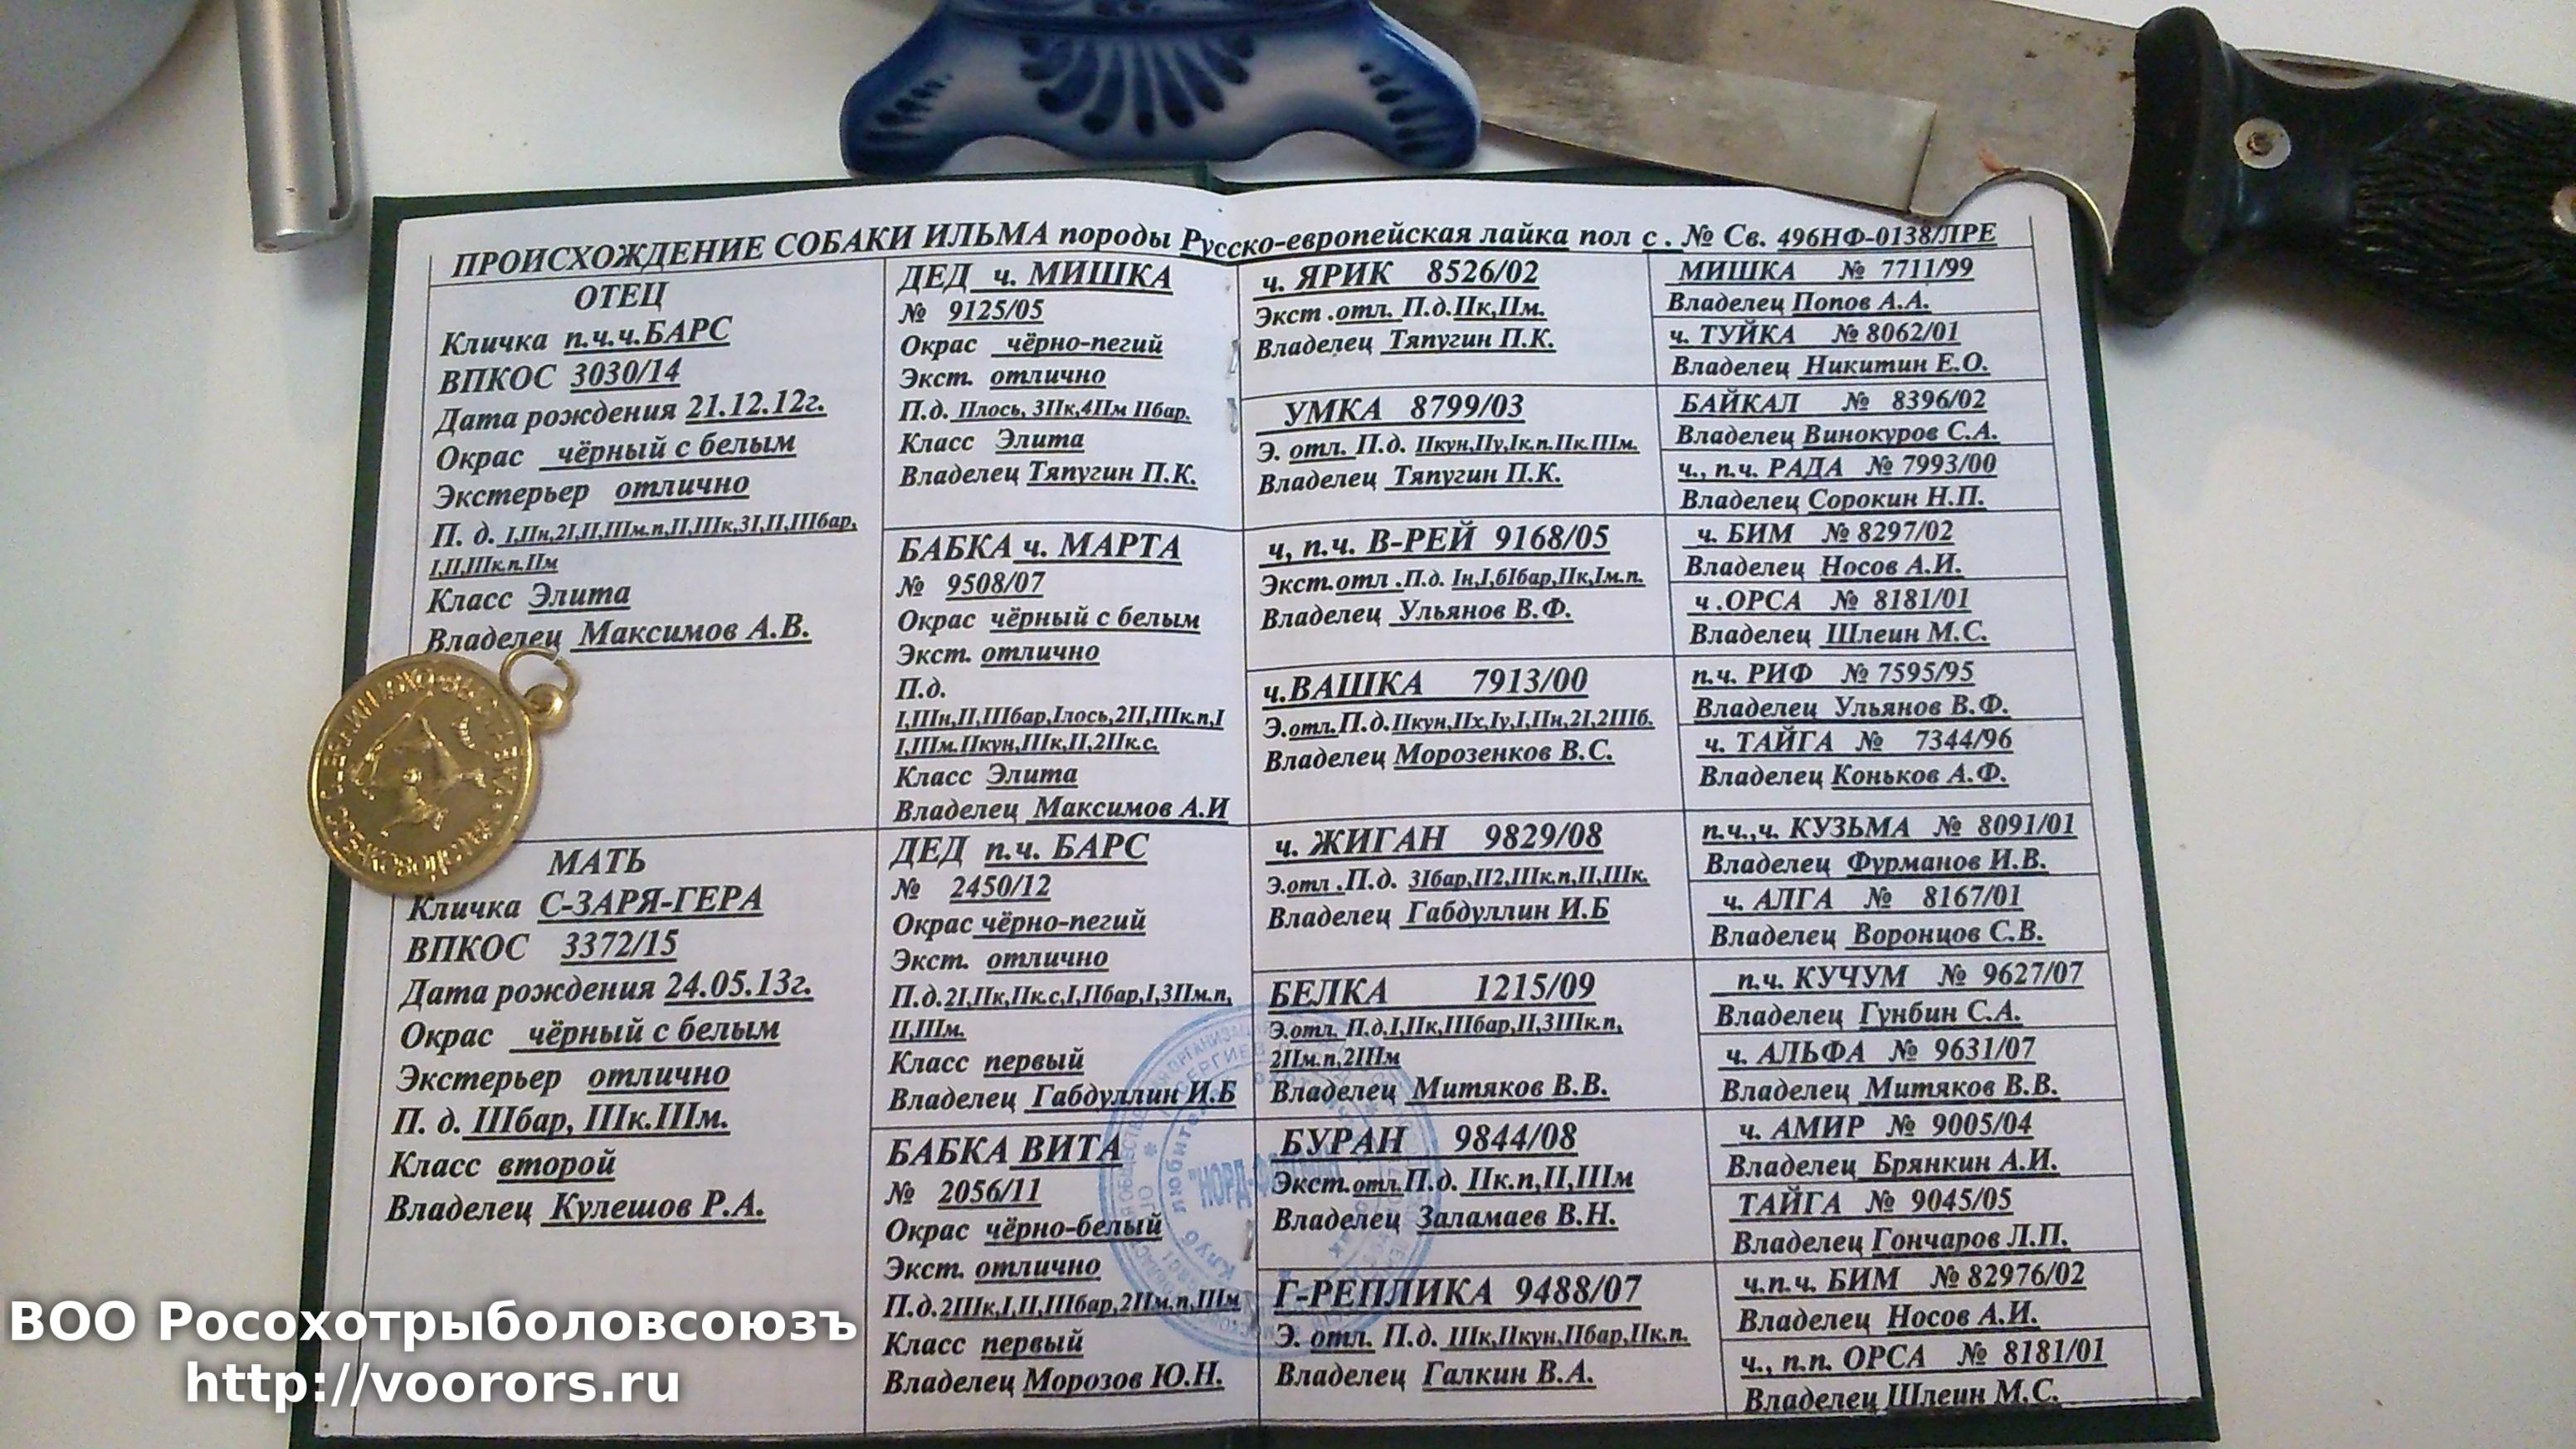 ПРОИСХОЖДЕНИЕ СОБАКИ ИЛЬМА породы Русско-европейская лайка пол с . № Св. 496НФ-0138/ЛРЕ
ОТЕЦ
Кличка п.ч.ч.БАРС
ВПКОС 3030/14
Дата рождения 21.12.12г.
Окрас чёрный с белым
Экстерьер отлично
П. д. I,IIн,2I,II,IIIм.п,II,IIIк,3I,II,IIIбар,
I,II,IIIк.п.IIм
Класс Элита
Владелец Максимов А.В.
МАТЬ
Кличка С-ЗАРЯ-ГЕРА
ВПКОС 3372/15
Дата рождения 24.05.13г.
Окрас чёрный с белым
Экстерьер отлично
П. д. IIIбар, IIIк.IIIм.
Класс второй
Владелец Кулешов Р.А.
ДЕД ч. МИШКА
№ 9125/05
Окрас чёрно-пегий
Экст. отлично
П.д. IIлось, 3IIк,4IIм IIбар.
Класс Элита
Владелец Тяпугин П.К.
БАБКА ч. МАРТА
№ 9508/07
Окрас чёрный с белым
Экст. отлично
П.д.
I,IIIн,II,IIIбар,Iлось,2II,IIIк.п,I
I,IIIм.IIкун,IIIк,II,2IIк.с.
Класс Элита
Владелец Максимов А.И
ДЕД п.ч. БАРС
№ 2450/12
Окрас чёрно-пегий
Экст. отлично
П.д.2I,IIк,IIк.с,I,IIбар,I,3IIм.п,
II,IIIм.
Класс первый
Владелец Габдуллин И.Б
БАБКА ВИТА
№ 2056/11
Окрас чёрно-белый
Экст. отлично
П.д.2IIIк,I,II,IIIбар,2IIм.п,IIIм
Класс первый
Владелец Морозов Ю.Н.
ч. ЯРИК 8526/02
Экст .отл. П.д.IIк,IIм.
Владелец Тяпугин П.К.
УМКА 8799/03
Э. отл. П.д. IIкун,IIу,Iк.п.IIк.IIIм.
Владелец Тяпугин П.К.
ч, п.ч. В-РЕЙ 9168/05
Экст.отл .П.д. Iн,I,6Iбар,IIк,Iм.п.
Владелец Ульянов В.Ф.
ч.ВАШКА 7913/00
Э.отл.П.д.IIкун,IIх,Iу,I,IIн,2I,2IIIб.
Владелец Морозенков В.С.
ч. ЖИГАН 9829/08
Э.отл .П.д. 3Iбар,II2,IIIк.п,II,IIIк.
Владелец Габдуллин И.Б
БЕЛКА 1215/09
Э.отл. П.д.I,IIк,IIIбар,II,3IIIк.п,
2IIм.п,2IIIм
Владелец Митяков В.В.
БУРАН 9844/08
Экст.отл.П.д. IIк.п,II,IIIм
Владелец Заламаев В.Н.
Г-РЕПЛИКА 9488/07
Э. отл. П.д. IIIк,IIкун,IIбар,IIк.п.
Владелец Галкин В.А.
МИШКА № 7711/99
Владелец Попов А.А.
ч. ТУЙКА № 8062/01
Владелец Никитин Е.О.
БАЙКАЛ № 8396/02
Владелец Винокуров С.А.
ч., п.ч. РАДА № 7993/00
Владелец Сорокин Н.П.
ч. БИМ № 8297/02
Владелец Носов А.И.
ч .ОРСА № 8181/01
Владелец Шлеин М.С.
п.ч. РИФ № 7595/95
Владелец Ульянов В.Ф.
ч. ТАЙГА № 7344/96
Владелец Коньков А.Ф.
п.ч.,ч. КУЗЬМА № 8091/01
Владелец Фурманов И.В.
ч. АЛГА № 8167/01
Владелец Воронцов С.В.
п.ч. КУЧУМ № 9627/07
Владелец Гунбин С.А.
ч. АЛЬФА № 9631/07
Владелец Митяков В.В.
ч. АМИР № 9005/04
Владелец Брянкин А.И.
ТАЙГА № 9045/05
Владелец Гончаров Л.П.
ч.п.ч. БИМ № 82976/02
Владелец Носов А.И.
ч., п.п. ОРСА № 8181/01
Владелец Шлеин М.С.
ВОО Росохотрыболовсоюзъ
http://voorors.ru